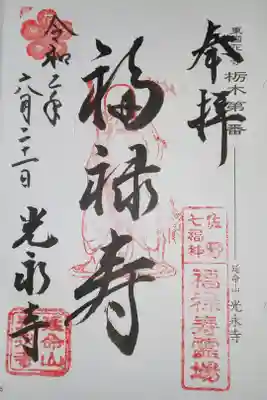 奉拝
栃木第
番
延命山 光永寺
佐野
七福神
福禄寿霊場
福禄寿
令和二年
六月二十一日
光永寺
延命山
光永寺